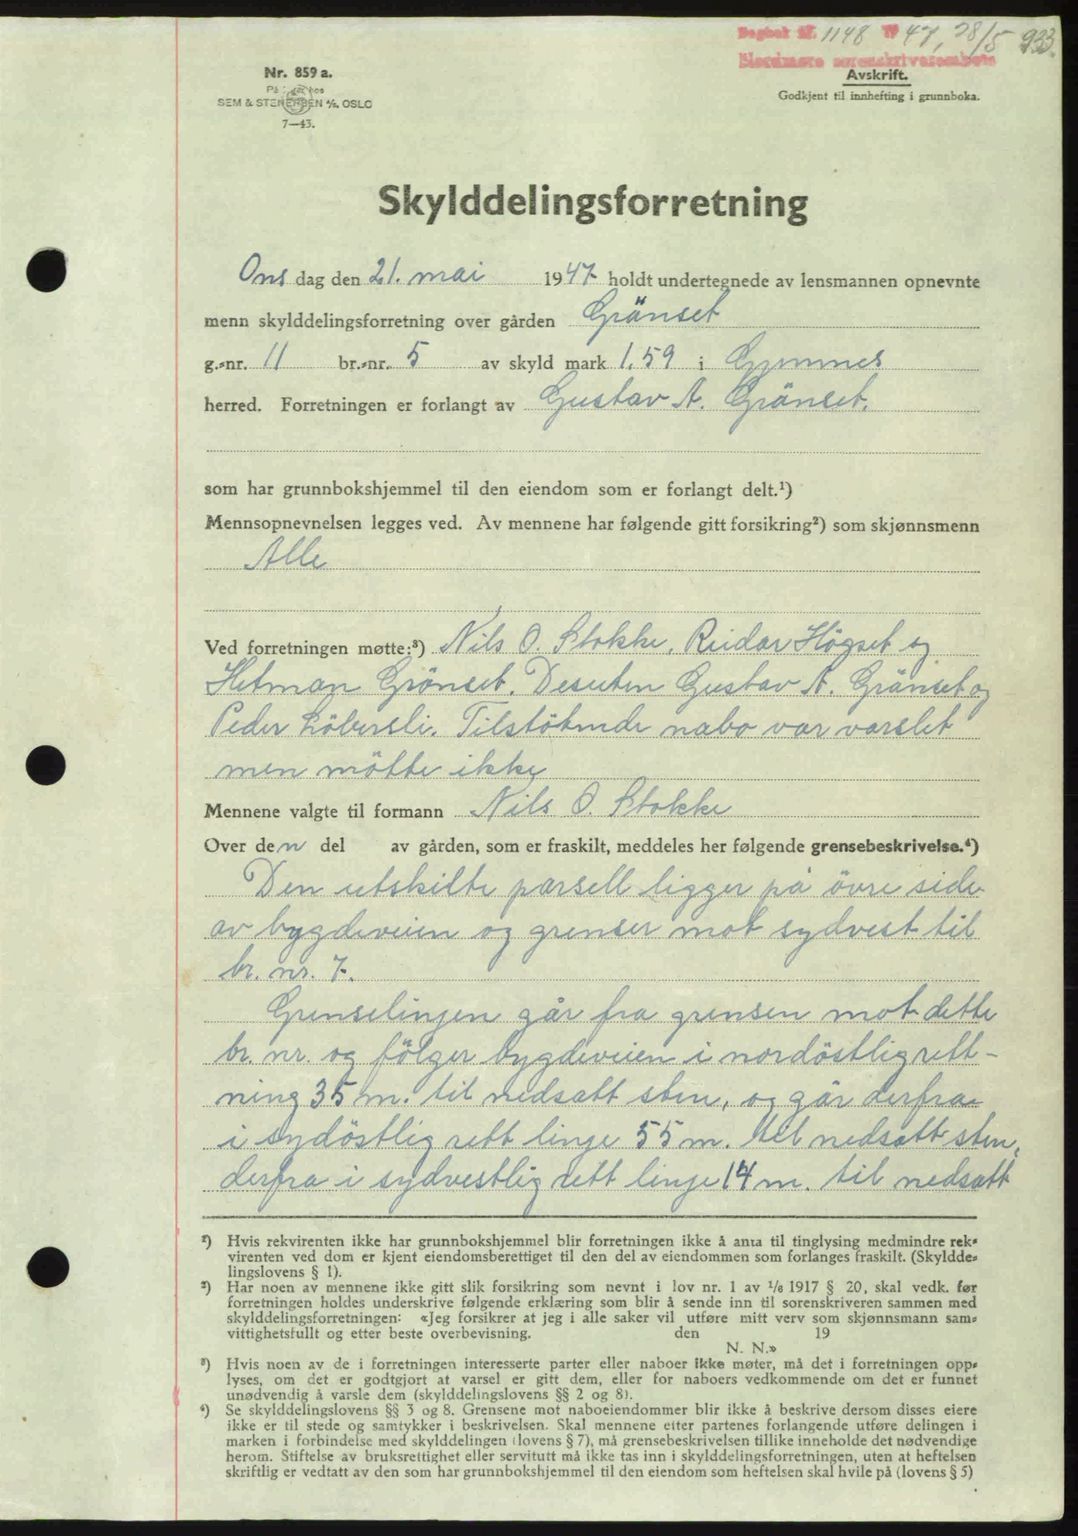 Dagbok nr. 1148 19 47, 28/5 933.
Nordmøre sorenskriverembete
Nr. 859 a.
SEM & STENERSEN A/S. OSLO
7—43.
Avskrift.
Godkjent til innhefting i grunnboka.
Skylddelingsforretning
Ons dag den 21. mai 1947 holdt undertegnede av lensmannen opnevnte
menn skylddelingsforretning over gården Grönset
g.-nr. 11 br.-nr. 5 av skyld mark 1,59 i Gjemnes
herred. Forretningen er forlangt av Gustav A. Grönset.
som har grunnbokshjemmel til den eiendom som er forlangt delt.¹)
Mennsopnevnelsen legges ved. Av mennene har følgende gitt forsikring²) som skjønnsmenn
Alle
Ved forretningen møtte:³) Nils O. Stokke, Reidar Högset og
Hetman Grönset. Desuten Gustav A. Grönset og
Peder Löbersli. Tilstötende nabo var varslet
men mötte ikke
Mennene valgte til formann Nils O. Stokke
Over den del av gården, som er fraskilt, meddeles her følgende grensebeskrivelse.⁴)
Den utskilte parsell ligger på övre side
av bygdeveien og grenser mot sydvest til
br. nr. 7.
Grenselinjen går fra grensen mot dette
br. nr. og fölger bygdeveien i nordöstlig rett-
ning 35 m. til nedsatt sten, og går derfra
i sydöstlig rett linje 55 m. til nedsatt sten,
derfra i sydvestlig rett linje 14 m. til nedsatt
¹) Hvis rekvirenten ikke har grunnbokshjemmel blir forretningen ikke å anta til tinglysing medmindre rek-
virenten ved dom er kjent eiendomsberettiget til den del av eiendommen som forlanges fraskilt. (Skyldde-
lingslovens § 1).
²) Har noen av mennene ikke gitt slik forsikring som nevnt i lov nr. 1 av 1/6 1917 § 20, skal vedk. før
forretningen holdes underskrive følgende erklæring som blir å sende inn til sorenskriveren sammen med
skylddelingsforretningen: «Jeg forsikrer at jeg i alle saker vil utføre mitt verv som skjønnsmann sam-
vittighetsfullt og etter beste overbevisning. den 19
N. N.»
³) Hvis noen av de i forretningen interesserte parter eller naboer ikke møter, må det i forretningen opp-
lyses, om det er godtgjort at varsel er gitt dem, eller for naboers vedkommende om det er funnet
unødvendig å varsle dem (skylddelingslovens §§ 2 og 8).
⁴) Se skylddelingslovens §§ 3 og 8. Grensene mot naboeiendommer blir ikke å beskrive dersom disses eiere
ikke er til stede og samtykker i beskrivelsen. Skal mennene etter partenes forlangende utføre delingen i
marken i forbindelse med skylddelingen (lovens § 7), må grensebeskrivelsen tillike inneholde det nødvendige
herom. Stiftelse av bruksrettighet eller servitutt må ikke tas inn i skylddelingsforretningen, uten at heftelsen
skriftlig er vedtatt av den som har grunnbokshjemmel til den eiendom som heftelsen skal hvile på (lovens § 5)